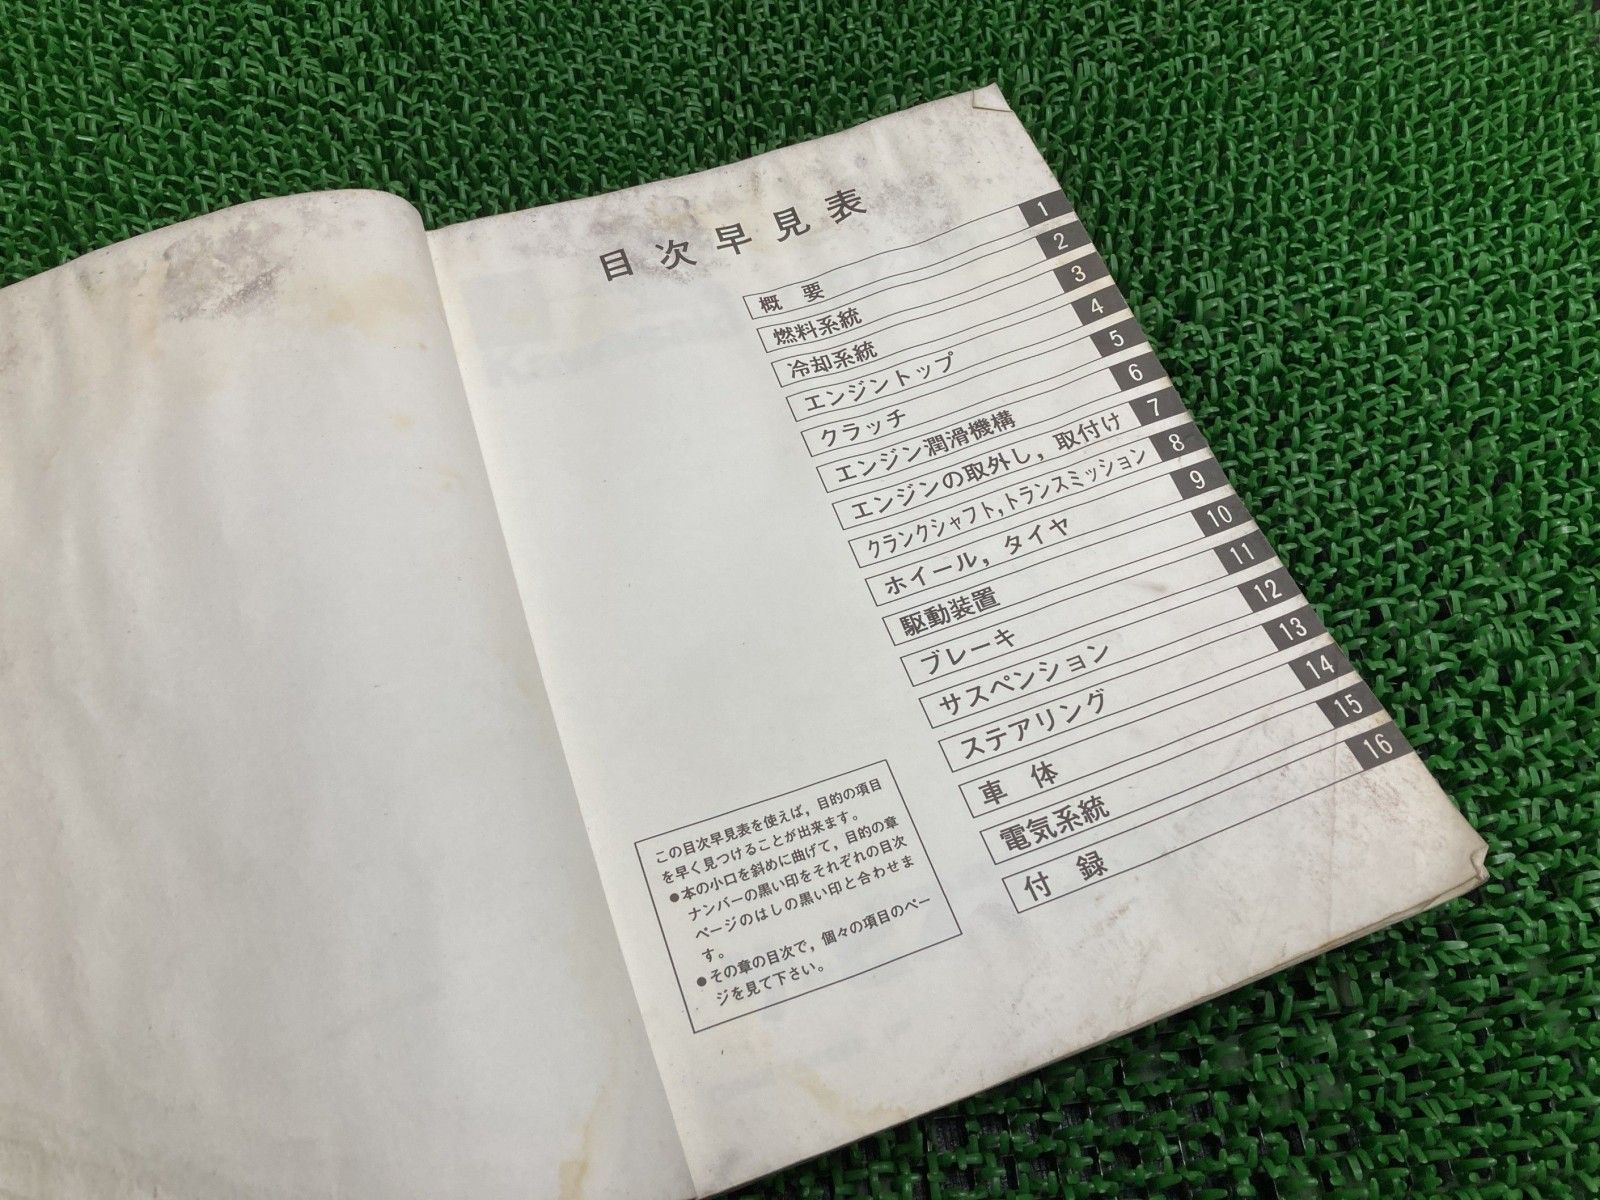 目次早見表
概要 1
燃料系統 2
冷却系統 3
エンジントップ 4
クラッチ 5
エンジン潤滑機構 6
エンジンの取外し，取付け 7
クランクシャフト，トランスミッション 8
ホイール，タイヤ 9
駆動装置 10
ブレーキ 11
サスペンション 12
ステアリング 13
車体 14
電気系統 15
付録 16
この目次早見表を使えば，目的の項目
を早く見つけることが出来ます。
●本の小口を斜めに曲げて，目的の章
ナンバーの黒い印をそれぞれの目次
ページのはしの黒い印と合わせま
す。
●その章の目次で，個々の項目のペー
ジを見て下さい。